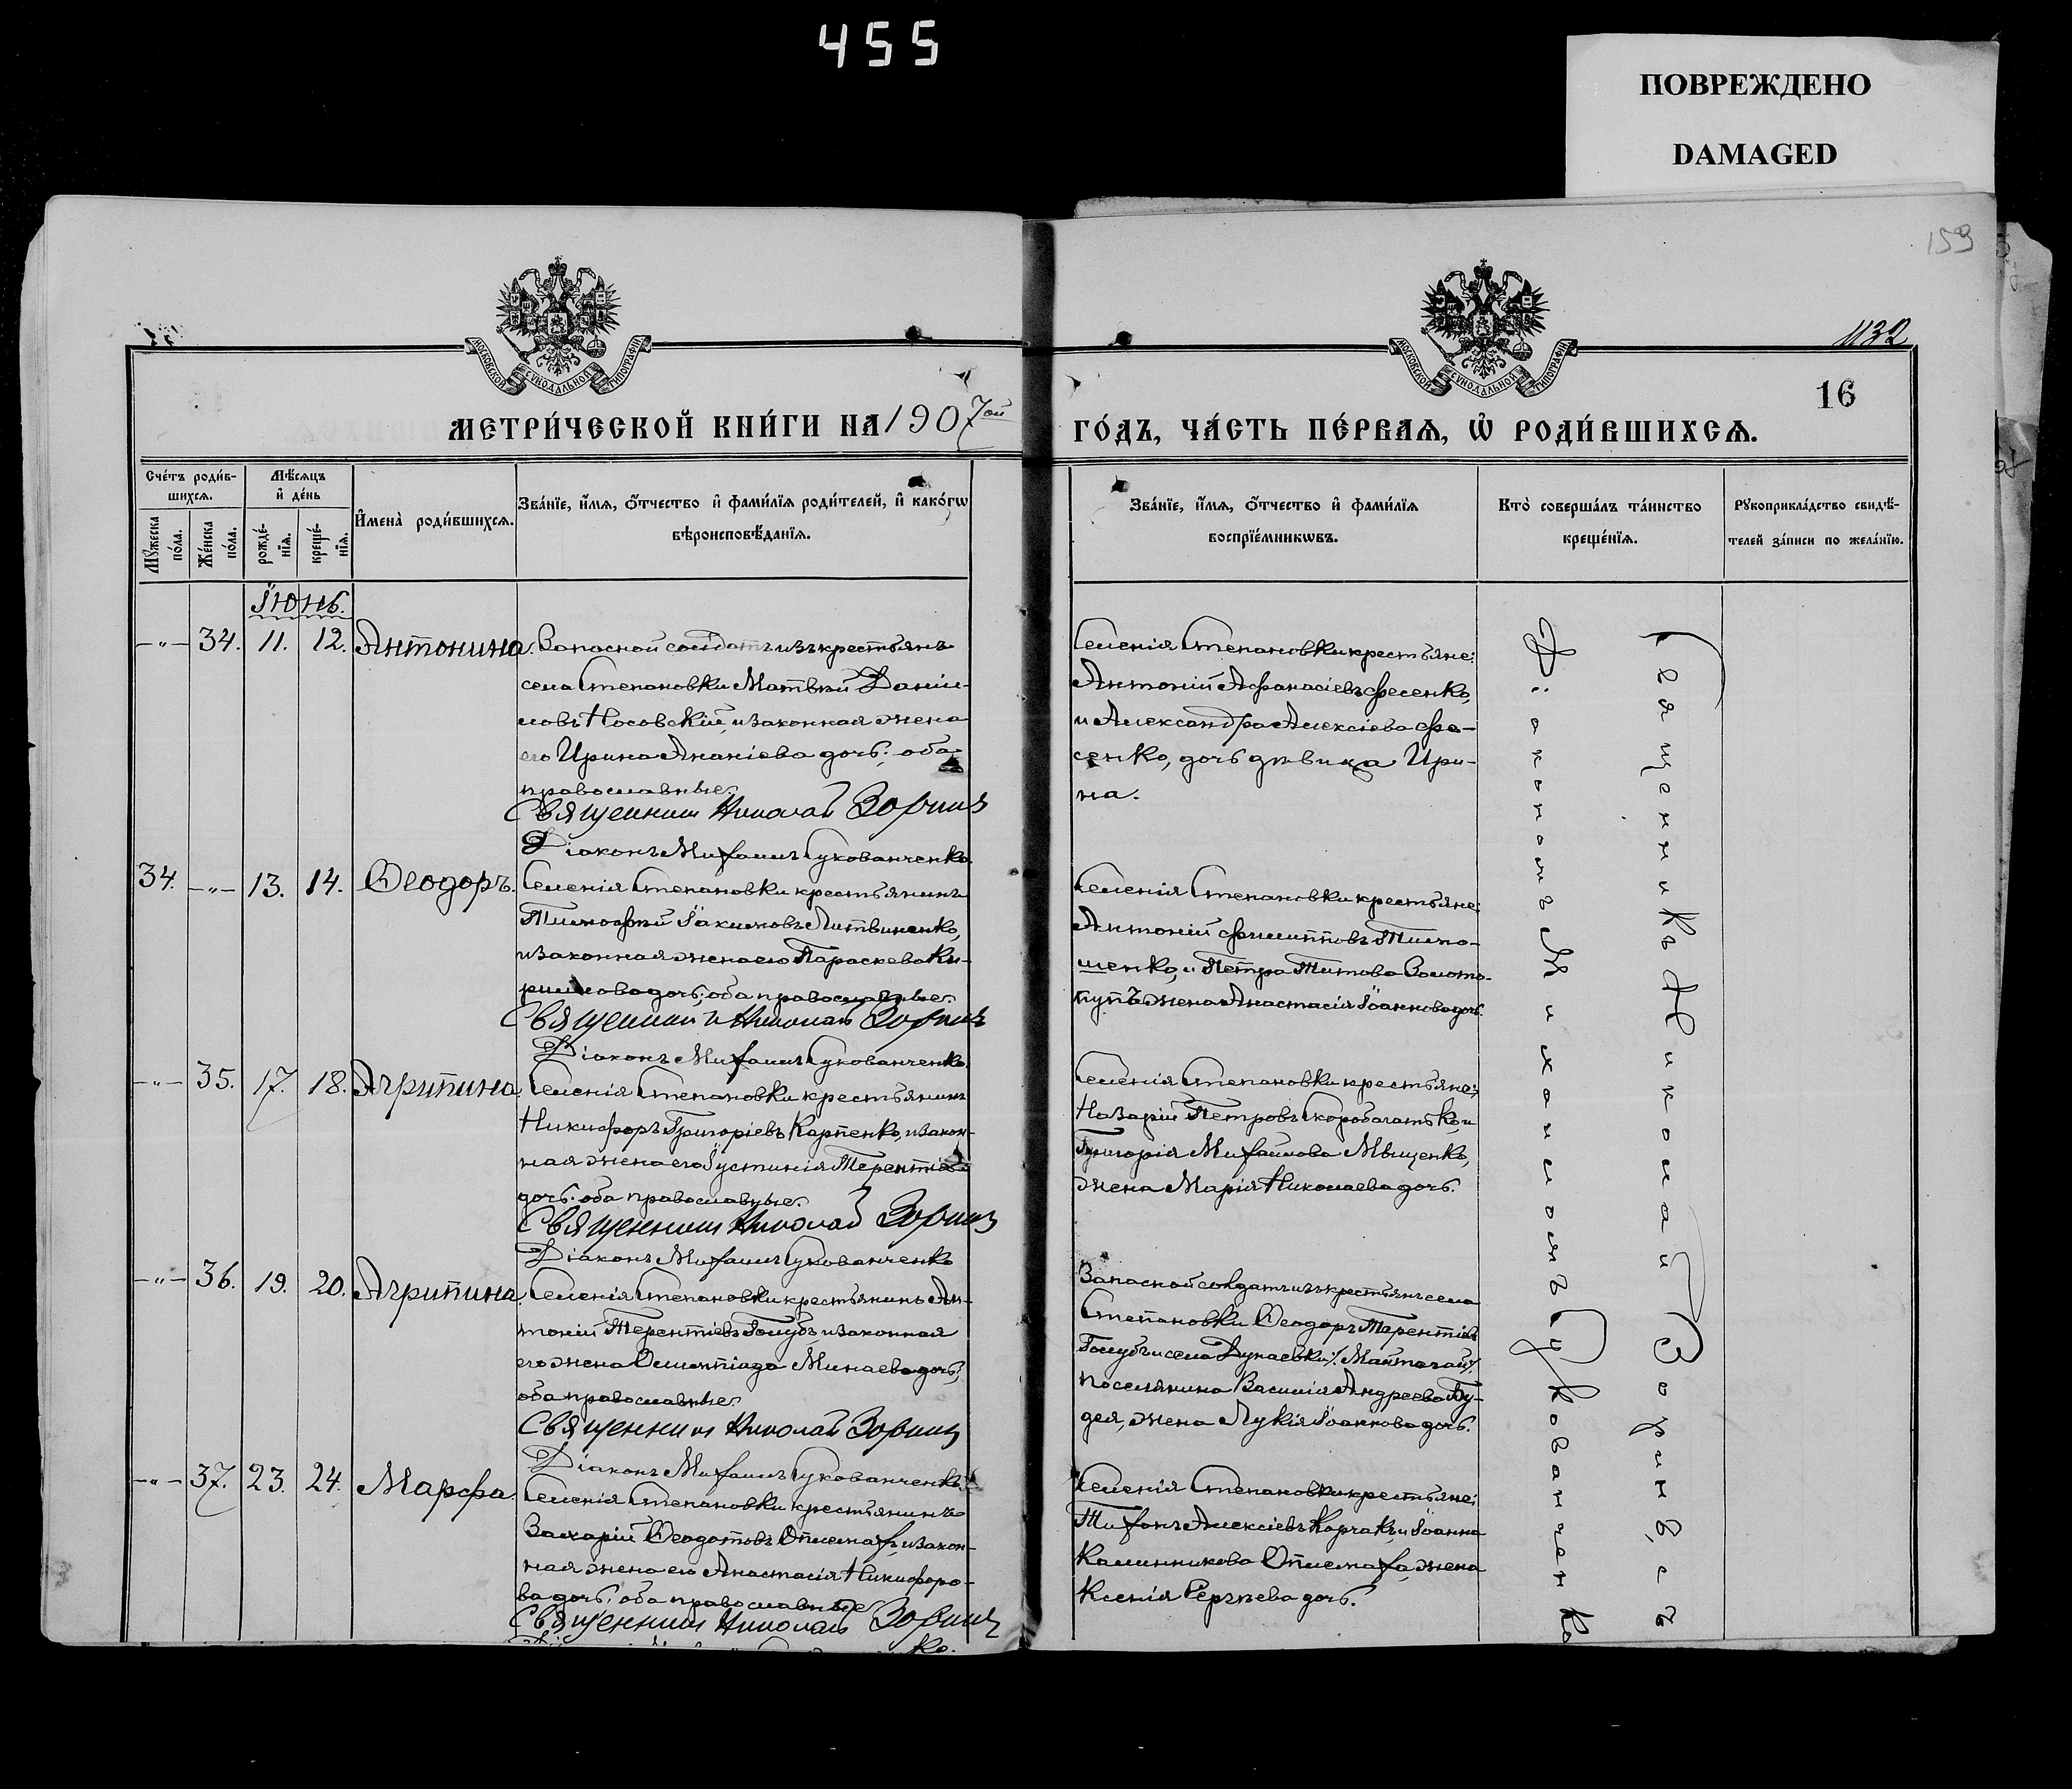 455
ПОВРЕЖДЕНО
DAMAGED
159
1132
16
МОСКОВСКОЙ СѴНОДАЛЬНОЙ ТИПОГРАФІИ
МОСКОВСКОЙ СѴНОДАЛЬНОЙ ТИПОГРАФІИ
МЕТРИ́ЧЕСКОЙ КНИ́ГИ НА 1907ой
ГО́ДЪ, ЧА́СТЬ ПЕ́РВАѦ, Ѡ҆ РОДИ́ВШИХСѦ.
Сче́тъ роди́вшихсѧ.
Мꙋ́жеска по́ла.
Же́нска по́ла.
Мѣ́сѧцъ и҆ де́нь
рожде́нїѧ.
креще́нїѧ.
И҆мена̀ роди́вшихсѧ.
Зва́нїе, и҆́мѧ, ѻ҆́тчество и҆ фами́лїѧ роди́телей, и҆ како́гѡ
вѣроисповѣ́данїѧ.
Зва́нїе, и҆́мѧ, ѻ҆́тчество и҆ фами́лїѧ
воспрїе́мникѡвъ.
Кто̀ соверша́лъ та́инство
креще́нїѧ.
Рꙋкоприкла́дство свидѣ́-
телей за́писи по жела́нїю.
Іюнь.
-"- 34. 11. 12. Антонина.
Запасной солдатъ изъ крестьянъ
села Степановки Матвѣй Даніи-
ловъ Носовскій, и законная жена
его Ирина Ананіева дочь; оба
православные.
Священникъ Николай Зоринъ
Діаконъ Михаилъ Сукованченко.
Селенія Степановки крестьяне:
Антоній Аѳанасіевъ Фесенко,
и Александра Алексіева Фе-
сенко, дочь дѣвица Ири-
на.
34. -"- 13. 14. Ѳеодоръ.
Селенія Степановки крестьянинъ
Тимоѳей Іакимовъ Литвиненко,
и законная жена его Параскева Ки-
риллова дочь; оба православные.
Священникъ Николай Зоринъ
Діаконъ Михаилъ Сукованченко.
Селенія Степановки крестьяне:
Антоній Филипповъ Тимо-
шенко, и Петра Титова Золото-
пупъ жена Анастасія Іоаннова дочь.
-"- 35. 17. 18. Агрипина.
Селенія Степановки крестьянинъ
Никифоръ Григоріевъ Карпенко, и закон-
ная жена его Іустинія Терентіева
дочь: оба православные.
Священникъ Николай Зоринъ
Діаконъ Михаилъ Сукованченко
Селенія Степановки крестьяне:
Назарій Петровъ Скоробагатько, и
Григорія Михаилова Мищенко,
жена Марія Николаева дочь.
-"- 36. 19. 20. Агрипина.
Селенія Степановки крестьянинъ Ан-
тоній Терентіевъ Голубъ и законная
его жена Олимпіада Минаева дочь;
оба православные.
Священникъ Николай Зоринъ
Діаконъ Михаилъ Сукованченко.
Запасной солдатъ изъ крестьянъ села
Степановки Ѳеодоръ Терентіевъ
Голубъ и села Дунаевки
поселянина Василія Андреева
жена Лукія Іоаннова дочь.
-"- 37. 23. 24. Марфа.
Селенія Степановки крестьянинъ
Захарій Ѳеодотовъ и закон-
ная жена его Анастасія Никифоро-
ва дочь: оба православные
Священникъ Николай Зоринъ
Селенія Степановки крестьяне:
Тихонъ Алексіевъ Корчакъ, и Іоанна
Калинникова жена
Ксенія Сергѣева дочь.
Священникъ Николай Зоринъ съ
Діакономъ Михаиломъ Сукованченко